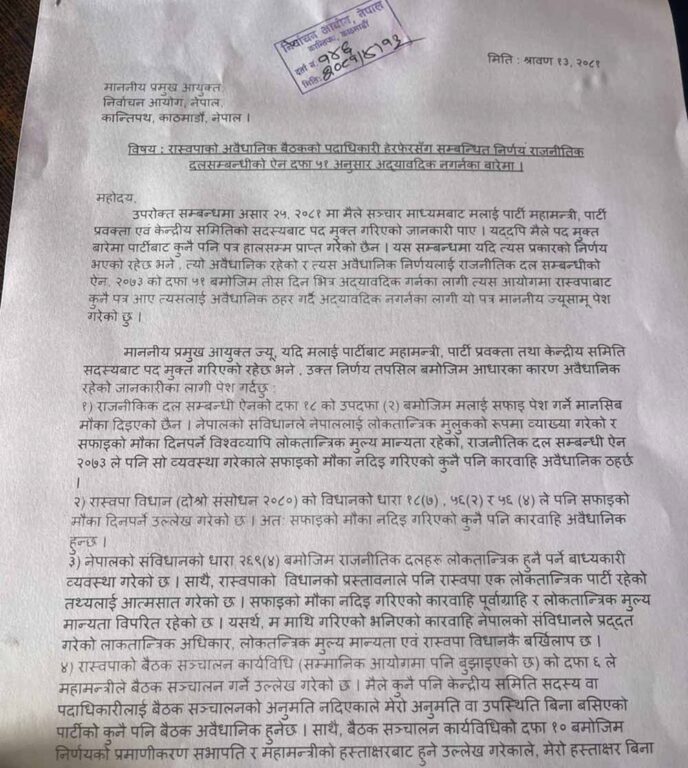 निर्वाचन आयोग, नेपाल
कान्तिपथ, काठमाडौं
दर्ता नं. १४६
मिति: २०८१/४/१३
मिति : श्रावण १३, २०८१
माननीय प्रमुख आयुक्त
निर्वाचन आयोग, नेपाल,
कान्तिपथ, काठमाडौं, नेपाल ।
विषय : रास्वपाको अवैधानिक बैठकको पदाधिकारी हेरफेरसँग सम्बन्धित निर्णय राजनीतिक
दलसम्बन्धीको ऐन दफा ५१ अनुसार अद्यावदिक नगर्नका बारेमा ।
महोदय,
उपरोक्त सम्बन्धमा असार २५, २०८१ मा मैले सञ्चार माध्यमबाट मलाई पार्टी महामन्त्री, पार्टी
प्रवक्ता एवं केन्द्रीय समितिको सदस्यबाट पद मुक्त गरिएको जानकारी पाए । यद्दपि मैले पद मुक्त
बारेमा पार्टीबाट कुनै पनि पत्र हालसम्म प्राप्त गरेको छैन । यस सम्बन्धमा यदि त्यस प्रकारको निर्णय
भएको रहेछ भने , त्यो अवैधानिक रहेको र त्यस अवैधानिक निर्णयलाई राजनीतिक दल सम्बन्धीको
ऐन, २०७३ को दफा ५१ बमोजिम तीस दिन भित्र अद्यावदिक गर्नका लागी त्यस आयोगमा रास्वपाबाट
कुनै पत्र आए त्यसलाई अवैधानिक ठहर गर्दै अद्यावदिक नगर्नका लागी यो पत्र माननीय ज्यूसामू पेश
गरेको छु ।
माननीय प्रमुख आयुक्त ज्यू, यदि मलाई पार्टीबाट महामन्त्री, पार्टी प्रवक्ता तथा केन्द्रीय समिति
सदस्यबाट पद मुक्त गरिएको रहेछ भने , उक्त निर्णय तपसिल बमोजिम आधारका कारण अवैधानिक
रहेको जानकारीका लागी पेश गर्दछु :
१) राजनीकिक दल सम्बन्धी ऐनको दफा १८ को उपदफा (२) बमोजिम मलाई सफाइ पेश गर्ने मानसिब
मौका दिइएको छैन । नेपालको संविधानले नेपाललाई लोकतान्त्रिक मुलुकको रूपमा व्याख्या गरेको र
सफाइको मौका दिनपर्ने विश्वव्यापि लोकतान्त्रिक मुल्य मान्यता रहेको, राजनीतिक दल सम्बन्धी ऐन
२०७३ ले पनि सो व्यवस्था गरेकाले सफाइको मौका नदिइ गरिएको कुनै पनि कारवाहि अवैधानिक ठहर्छ
।
२) रास्वपा विधान (दोश्रो संसोधन २०८०) को विधानको धारा १८(७) , ५६(२) र ५६ (४) ले पनि सफाइको
मौका दिनपर्ने उल्लेख गरेको छ । अतः सफाइको मौका नदिइ गरिएको कुनै पनि कारवाहि अवैधानिक
हुन्छ ।
३) नेपालको संविधानको धारा २६९(४) बमोजिम राजनीतिक दलहरू लोकतान्त्रिक हुनै पर्ने बाध्यकारी
व्यवस्था गरेको छ । साथै, रास्वपाको विधानको प्रस्तावनाले पनि रास्वपा एक लोकतान्त्रिक पार्टी रहेको
तथ्यलाई आत्मसात गरेको छ । सफाइको मौका नदिइ गरिएको कारवाहि पूर्वाग्राहि र लोकतान्त्रिक मुल्य
मान्यता विपरित रहेको छ । यसर्थ, म माथि गरिएको भनिएको कारवाहि नेपालको संविधानले प्रद्दत
गरेको लाकतान्त्रिक अधिकार, लोकतन्त्रिक मुल्य मान्यता एवं रास्वपा विधानकै बर्खिलाप छ ।
४) रास्वपाको बैठक सञ्चालन कार्यविधि (सम्मानिक आयोगमा पनि बुझाइएको छ) को दफा ६ ले
महामन्त्रीले बैठक सञ्चालन गर्ने उल्लेख गरेको छ । मैले कुनै पनि केन्द्रीय समिति सदस्य वा
पदाधिकारीलाई बैठक सञ्चालनको अनुमति नदिएकाले मेरो अनुमति वा उपस्थिति बिना बसिएको
पार्टीको कुनै पनि बैठक अवैधानिक हुनेछ । साथै, बैठक सञ्चालन कार्यविधिको दफा १० बमोजिम
निर्णयको प्रमाणीकरण सभापति र महामन्त्रीको हस्ताक्षरबाट हुने उल्लेख गरेकाले, मेरो हस्ताक्षर बिना